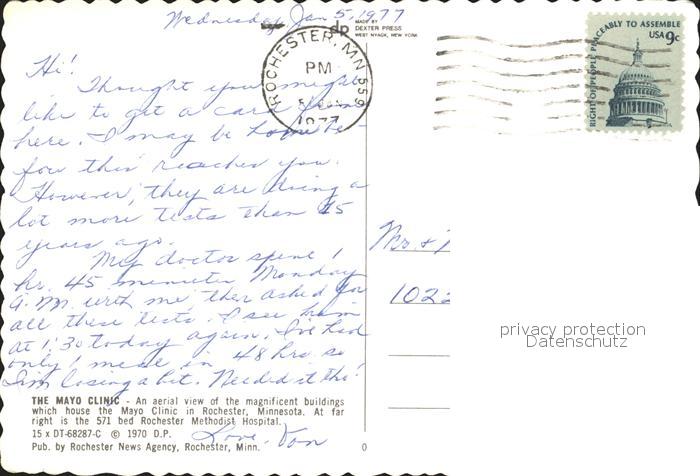 Wednesday, Jan 5, 1977
dp
MADE BY
DEXTER PRESS
WEST NYACK, NEW YORK
ROCHESTER, MN 559
PM
1977
RIGHT OF PEOPLE PEACEABLY TO ASSEMBLE
USA 9c
Hi!
Thought you might
like to get a card from
here. I may be home be-
fore this reaches you.
However, they are doing a
lot more tests than 15
years ago.
My doctor spent 1
hr. 45 minutes Monday
A.M. with me then asked for
all these tests. I see him
at 1:30 today again. I've had
only 1 meal in 48 hrs. so
I'm losing a bit. Needed it tho!
Love, Von
Mr. &
102
privacy protection
Datenschutz
THE MAYO CLINIC - An aerial view of the magnificent buildings
which house the Mayo Clinic in Rochester, Minnesota. At far
right is the 571 bed Rochester Methodist Hospital.
15 x DT-68287-C © 1970 D.P.
Pub. by Rochester News Agency, Rochester, Minn.
0